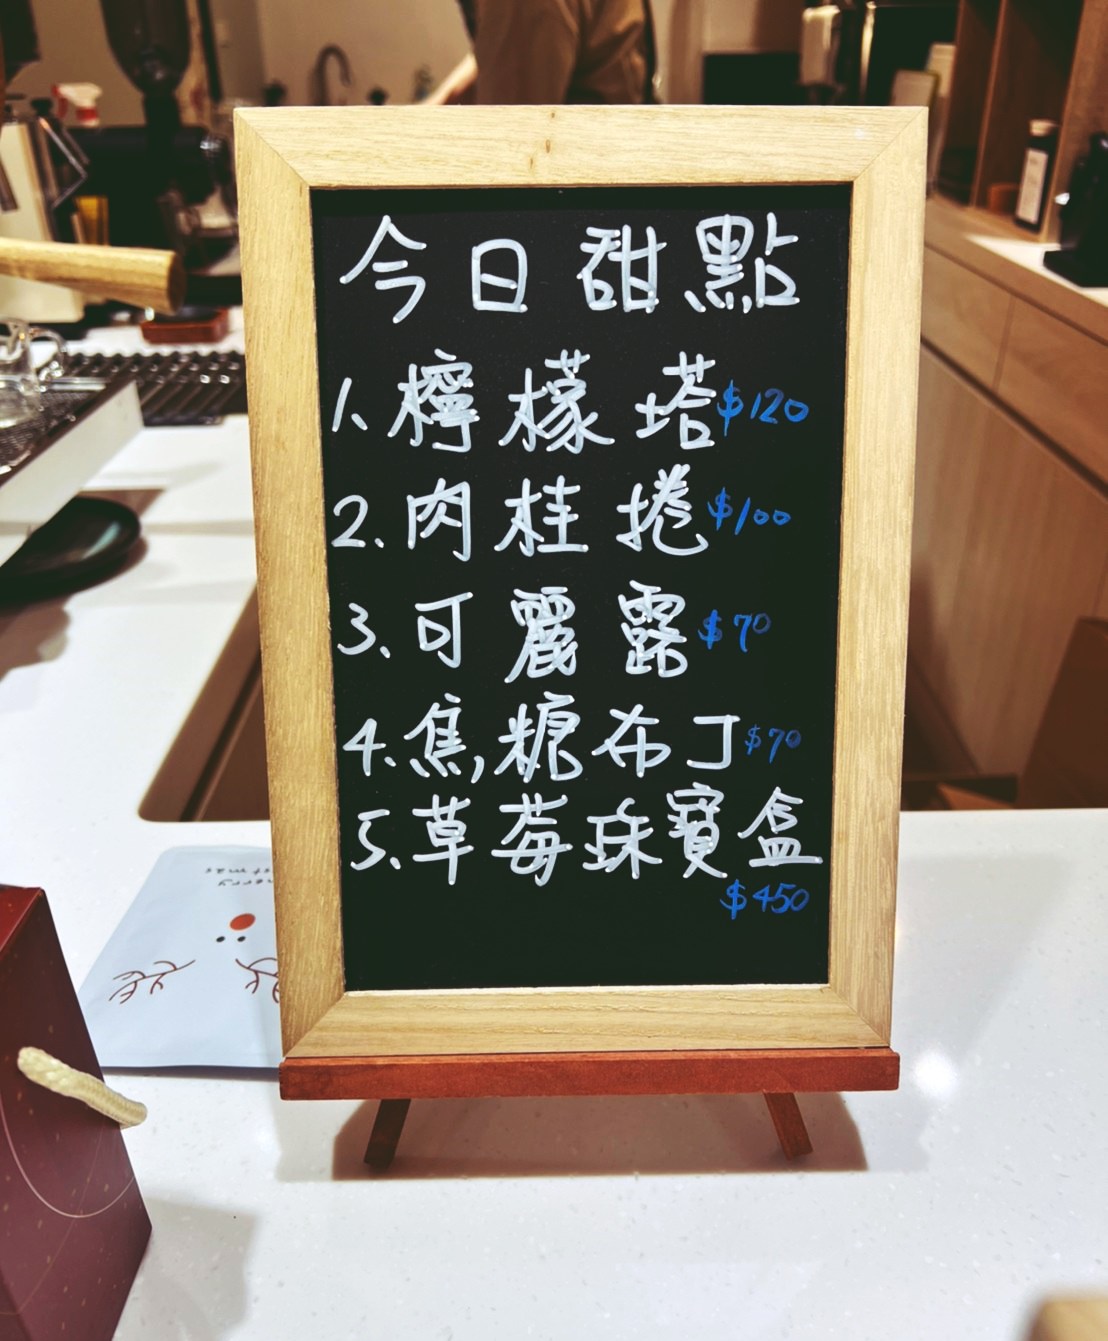 今日甜點
1. 檸檬塔 $120
2. 肉桂捲 $100
3. 可麗露 $70
4. 焦糖布丁 $70
5. 草莓珠寶盒
$450
merry